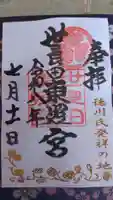 奉拝
徳川氏発祥の地
世良田東照宮
令和八年
七月十一日